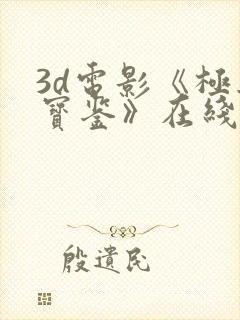 3d電影《極
寶鉴》在綫
殷遺民